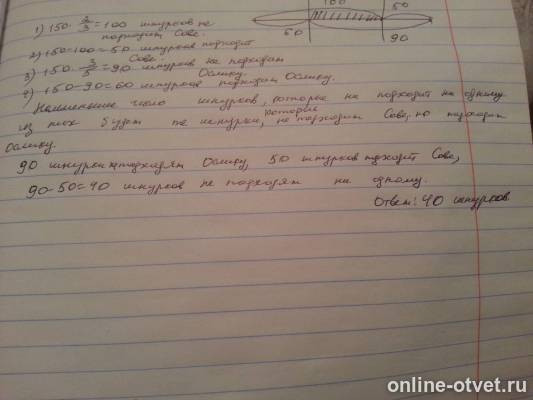 1) 150 · 2/3 = 100 шнурков не
подходят Сове.
2) 150 - 100 = 50 шнурков подходят
Сове.
3) 150 · 3/5 = 90 шнурков не подходят
Ослику.
150 - 90 = 60 шнурков подходят Ослику.
Наименьшее число шнурков, которое не подходит ни одному
из них будет те шнурки, которые не подходят Сове, но подходят
Ослику.
90 шнурков подходят Ослику, 50 шнурков подходят Сове,
90 - 50 = 40 шнурков не подходят ни одному.
Ответ: 40 шнурков
100
50
50
90
online-otvet.ru